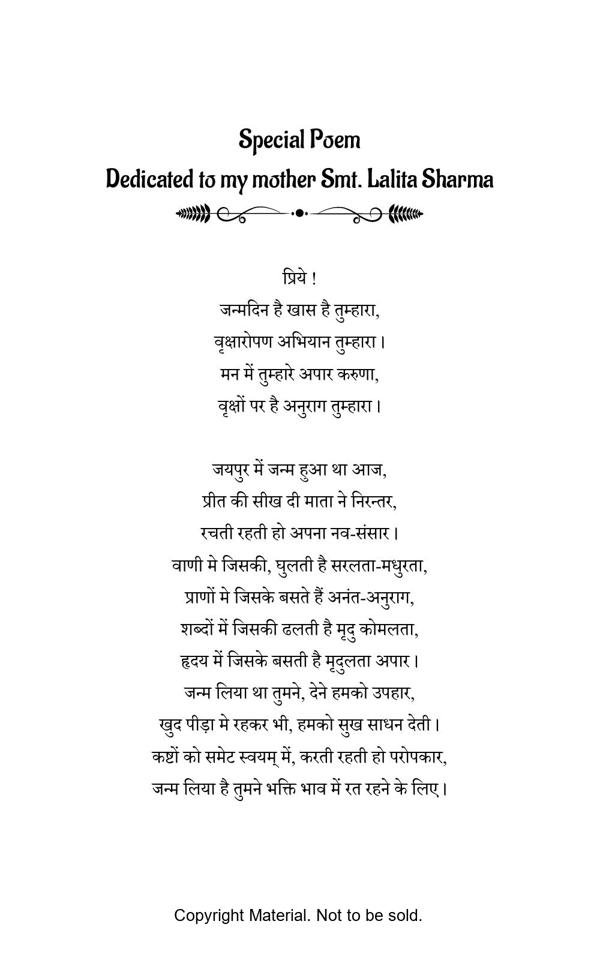 Special Poem
Dedicated to my mother Smt. Lalita Sharma
प्रिये !
जन्मदिन है खास है तुम्हारा,
वृक्षारोपण अभियान तुम्हारा ।
मन में तुम्हारे अपार करुणा,
वृक्षों पर है अनुराग तुम्हारा ।
जयपुर में जन्म हुआ था आज,
प्रीत की सीख दी माता ने निरन्तर,
रचती रहती हो अपना नव-संसार ।
वाणी मे जिसकी, घुलती है सरलता-मधुरता,
प्राणों मे जिसके बसते हैं अनंत-अनुराग,
शब्दों में जिसकी ढलती है मृदु कोमलता,
हृदय में जिसके बसती है मृदुलता अपार ।
जन्म लिया था तुमने, देने हमको उपहार,
खुद पीड़ा मे रहकर भी, हमको सुख साधन देती ।
कष्टों को समेट स्वयम् में, करती रहती हो परोपकार,
जन्म लिया है तुमने भक्ति भाव में रत रहने के लिए ।
Copyright Material. Not to be sold.